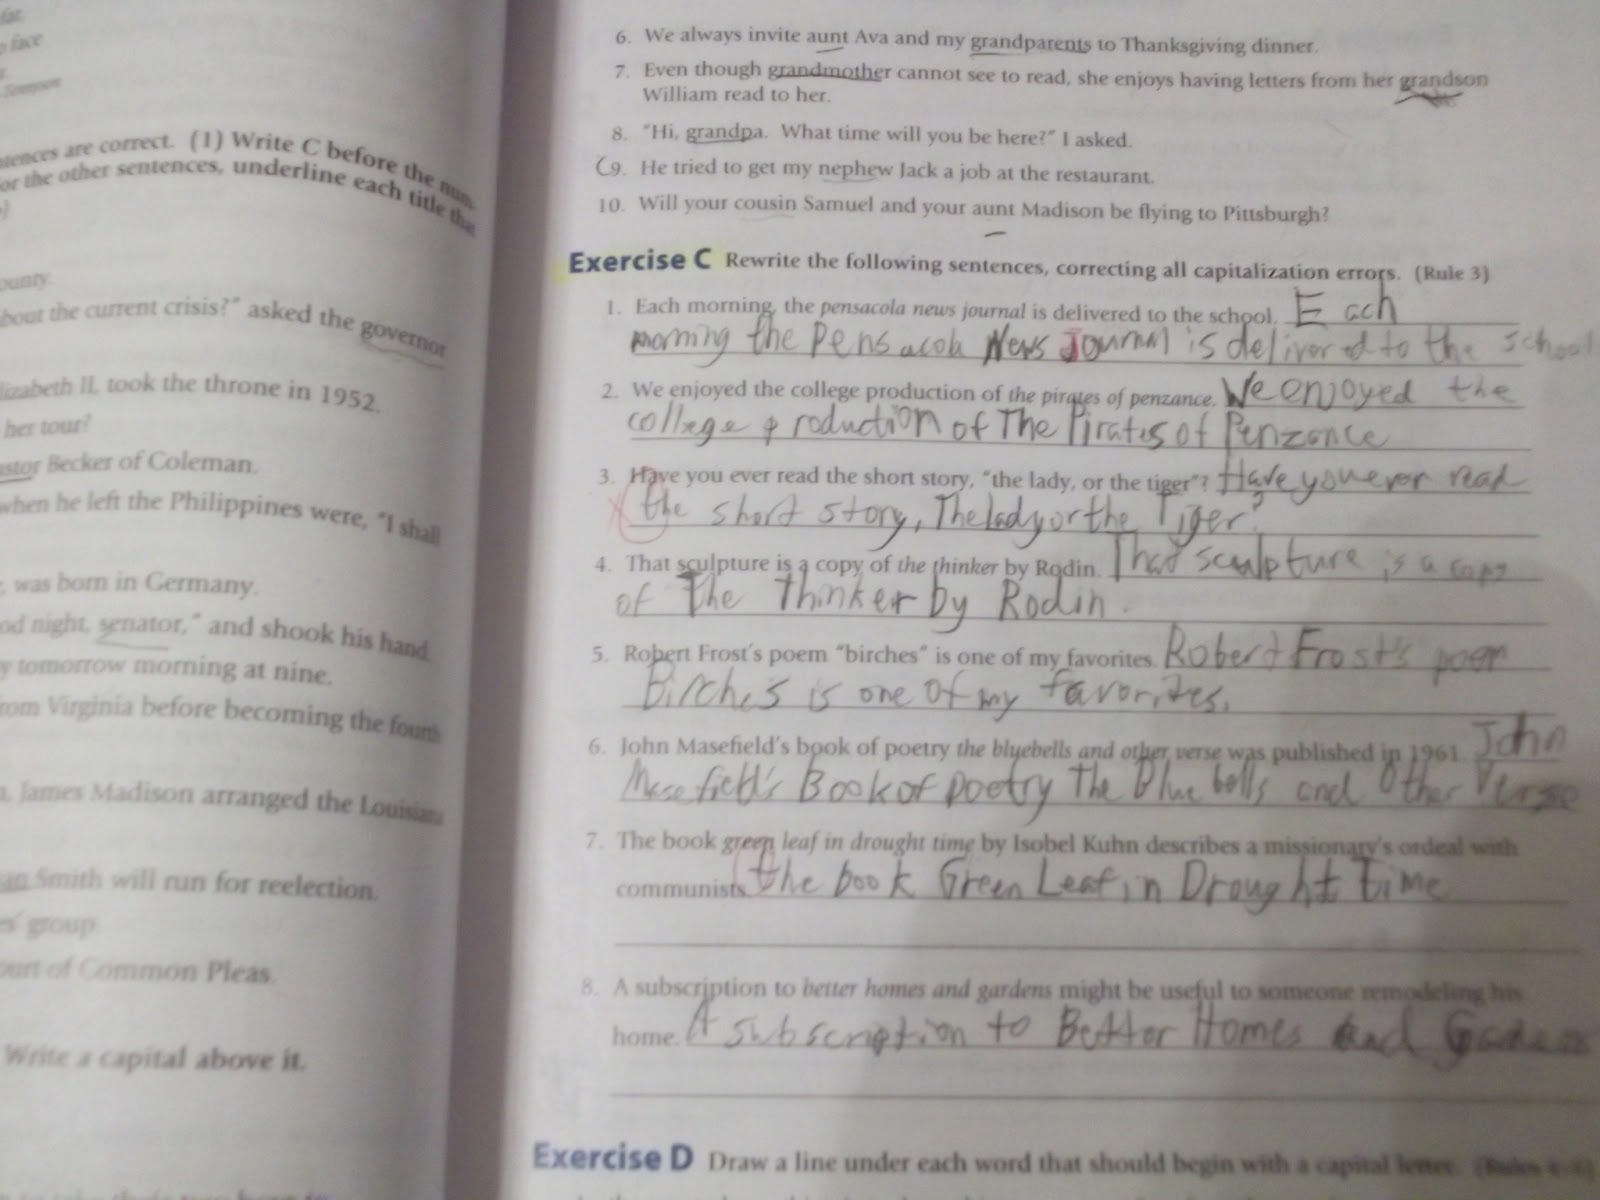 face
tences are correct. (1) Write C before the num-
or the other sentences, underline each title that
ounty.
bout the current crisis?" asked the governor
lizabeth II, took the throne in 1952.
her tour?
astor Becker of Coleman.
when he left the Philippines were, "I shall
, was born in Germany.
od night, senator," and shook his hand.
y tomorrow morning at nine.
rom Virginia before becoming the fourth
James Madison arranged the Louisiana
an Smith will run for reelection.
es' group.
ourt of Common Pleas.
Write a capital above it.
6. We always invite aunt Ava and my grandparents to Thanksgiving dinner.
7. Even though grandmother cannot see to read, she enjoys having letters from her grandson
William read to her.
8. "Hi, grandpa. What time will you be here?" I asked.
C 9. He tried to get my nephew Jack a job at the restaurant.
10. Will your cousin Samuel and your aunt Madison be flying to Pittsburgh?
Exercise C Rewrite the following sentences, correcting all capitalization errors. (Rule 3)
1. Each morning, the pensacola news journal is delivered to the school. Each
morning the Pensacola News Journal is delivered to the school
2. We enjoyed the college production of the pirates of penzance. We enjoyed the
college production of The Pirates of Penzance
3. Have you ever read the short story, "the lady, or the tiger"? Have you ever read
the short story, The lady or the Tiger?
4. That sculpture is a copy of the thinker by Rodin. That sculpture is a copy
of The Thinker by Rodin.
5. Robert Frost's poem "birches" is one of my favorites. Robert Frost's poem
Birches is one of my favorites.
6. John Masefield's book of poetry the bluebells and other verse was published in 1961. John
Masefield's Book of poetry The Blue bells and Other Verse
7. The book green leaf in drought time by Isobel Kuhn describes a missionary's ordeal with
communists. the book Green Leaf in Drought Time
8. A subscription to better homes and gardens might be useful to someone remodeling his
home. A subscription to Better Homes and Gardens
Exercise D Draw a line under each word that should begin with a capital letter.